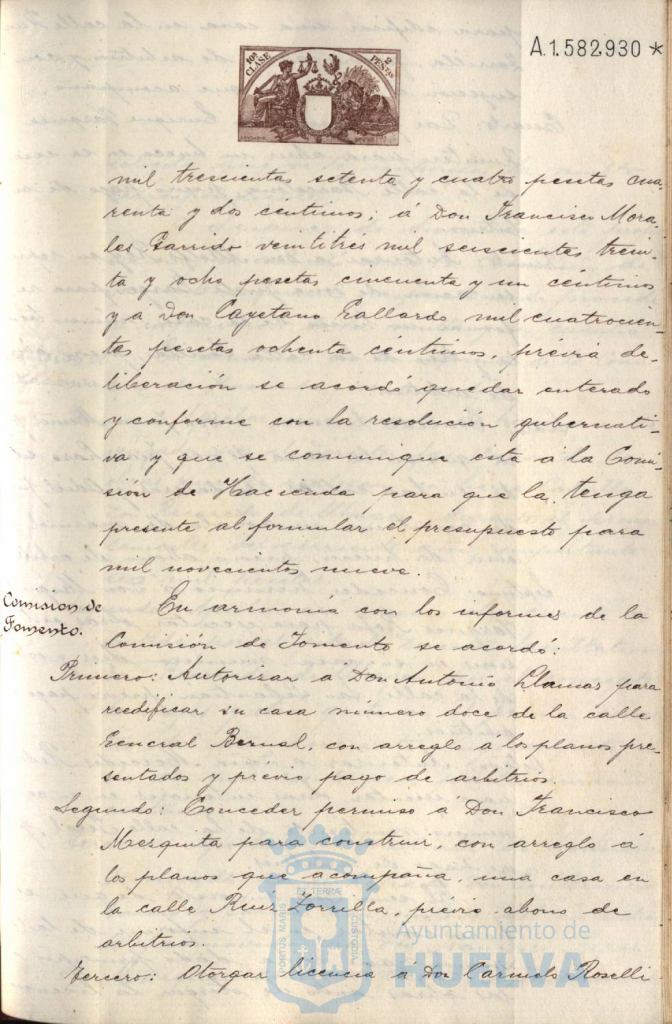 A.1.582.930 *
10ª CLASE
2 PESETAS
mil trescientas setenta y cuatro pesetas cua-
renta y dos céntimos; á Don Francisco Mora-
les Garrido veintitres mil seiscientas trein-
ta y ocho pesetas cincuenta y un céntimos
y á Don Cayetano Gallardo mil cuatrocien-
tas pesetas ochenta céntimos, prévia de-
liberación se acordó quedar enterado
y conforme con la resolución gubernati-
va y que se comunique esta á la Comi-
sión de Hacienda para que la tenga
presente al formular el presupuesto para
mil novecientos nueve.
Comision de
Fomento.
En armonía con los informes de la
Comisión de Fomento se acordó:
Primero: Autorizar á Don Antonio Llamas para
reedificar su casa número doce de la calle
General Bernal, con arreglo á los planos pre-
sentados y prévio pago de arbitrios.
Segundo: Conceder permiso á Don Francisco
Mezquita para construir, con arreglo á
los planos que acompaña, una casa en
la calle Ruiz Zorrilla, prévio abono de
arbitrios.
Tercero: Otorgar licencia á Don Carmelo Roselli
PORTUS MARIS ET TERRÆ CUSTODIA
Ayuntamiento de
HUELVA